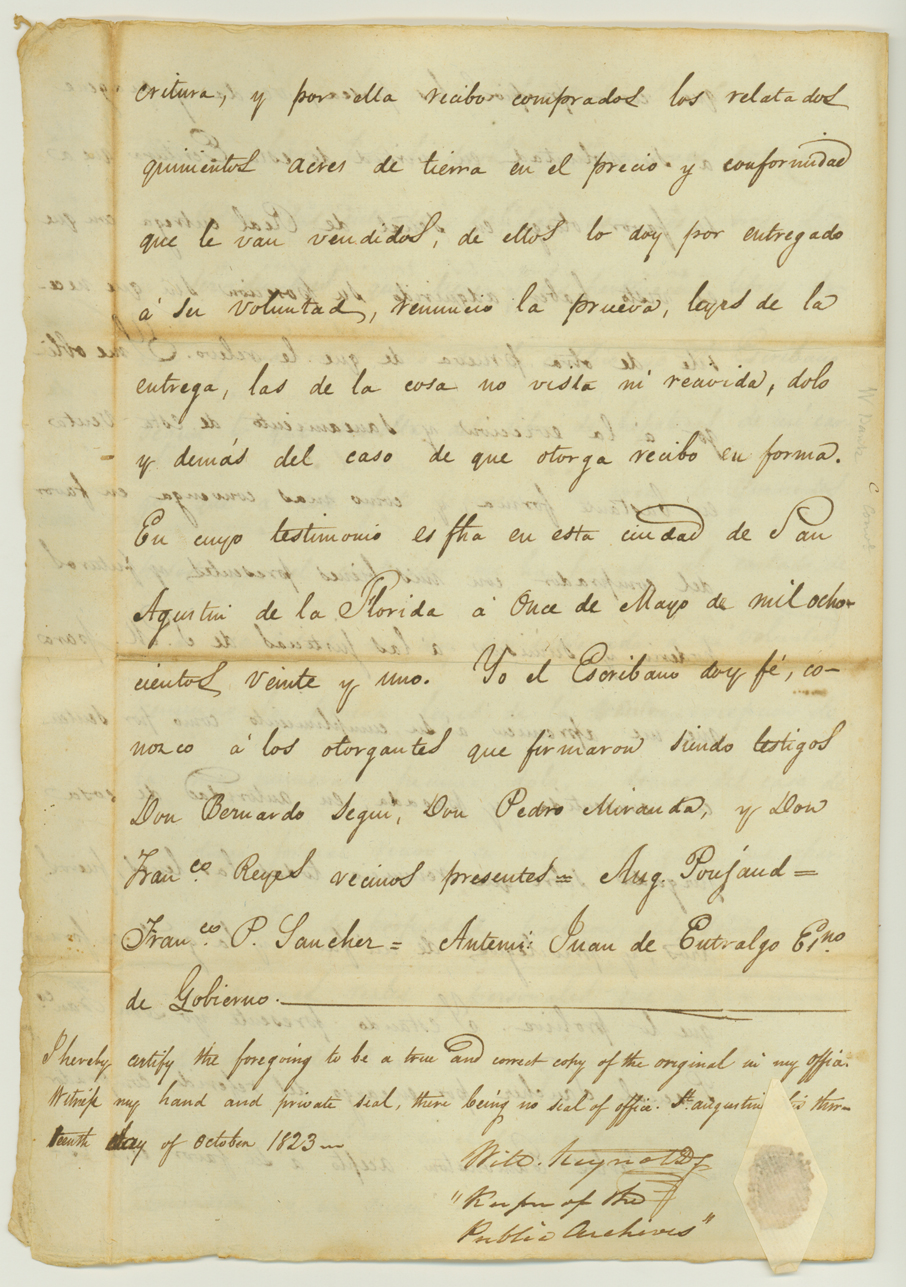 critura, y por ella recibo comprados los relatados
quinientos acres de tierra en el precio y conformidad
que le van vendidos, de ellos lo doy por entregado
á su voluntad, renuncio la prueva, leyes de la
entrega, las de la cosa no vista ni reavida, dolo
y demás del caso de que otorga recibo en forma.
En cuyo testimonio es fha en esta ciudad de San
Agustin de la Florida á Once de Mayo de mil ocho-
cientos veinte y uno. Yo el Escribano doy fé, co-
nozco á los otorgantes que firmaron siendo testigos
Don Bernardo Segui, Don Pedro Miranda, y Don
Franco. Reyes vecinos presentes = Aug. Poujaud =
Franco. P. Sanchez = Antemi: Juan de Entralgo Esno.
de Gobierno.
I hereby certify the foregoing to be a true and correct copy of the original in my office.
Witness my hand and private seal, there being no seal of office. St. augustine this thir-
teenth day of October 1823
Wm. Reynolds
"Keeper of the
Public Archives"